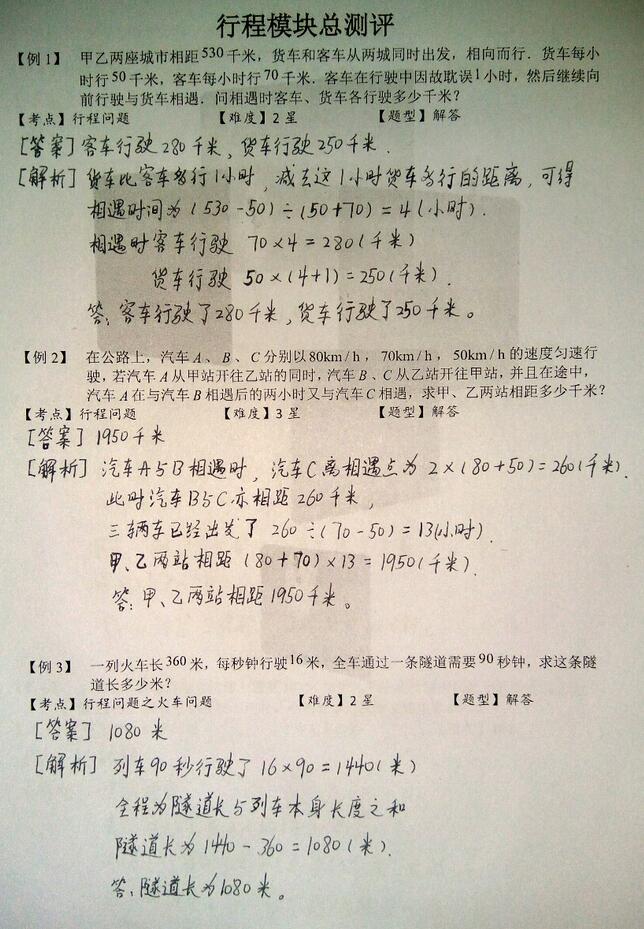 行程模块总测评
【例1】 甲乙两座城市相距530千米，货车和客车从两城同时出发，相向而行．货车每小
时行50千米，客车每小时行70千米．客车在行驶中因故耽误1小时，然后继续向
前行驶与货车相遇．问相遇时客车、货车各行驶多少千米？
【考点】行程问题 【难度】2星 【题型】解答
[答案] 客车行驶280千米，货车行驶250千米．
[解析] 货车比客车多行1小时，减去这1小时货车多行的距离，可得
相遇时间为(530-50)÷(50+70)=4(小时)．
相遇时客车行驶 70×4=280(千米)
货车行驶 50×(4+1)=250(千米)．
答：客车行驶了280千米，货车行驶了250千米。
【例2】 在公路上，汽车A、B、C分别以80km/h，70km/h，50km/h的速度匀速行
驶，若汽车A从甲站开往乙站的同时，汽车B、C从乙站开往甲站，并且在途中，
汽车A在与汽车B相遇后的两小时又与汽车C相遇，求甲、乙两站相距多少千米？
【考点】行程问题 【难度】3星 【题型】解答
[答案] 1950千米
[解析] 汽车A与B相遇时，汽车C离相遇点为2×(80+50)=260(千米)．
此时汽车B与C亦相距260千米，
三辆车已经出发了 260÷(70-50)=13(小时)．
甲、乙两站相距 (80+70)×13=1950(千米)．
答：甲、乙两站相距1950千米。
【例3】 一列火车长360米，每秒钟行驶16米，全车通过一条隧道需要90秒钟，求这条隧
道长多少米？
【考点】行程问题之火车问题 【难度】2星 【题型】解答
[答案] 1080米
[解析] 列车90秒行驶了16×90=1440(米)
全程为隧道长与列车本身长度之和
隧道长为1440-360=1080(米)．
答：隧道长为1080米。